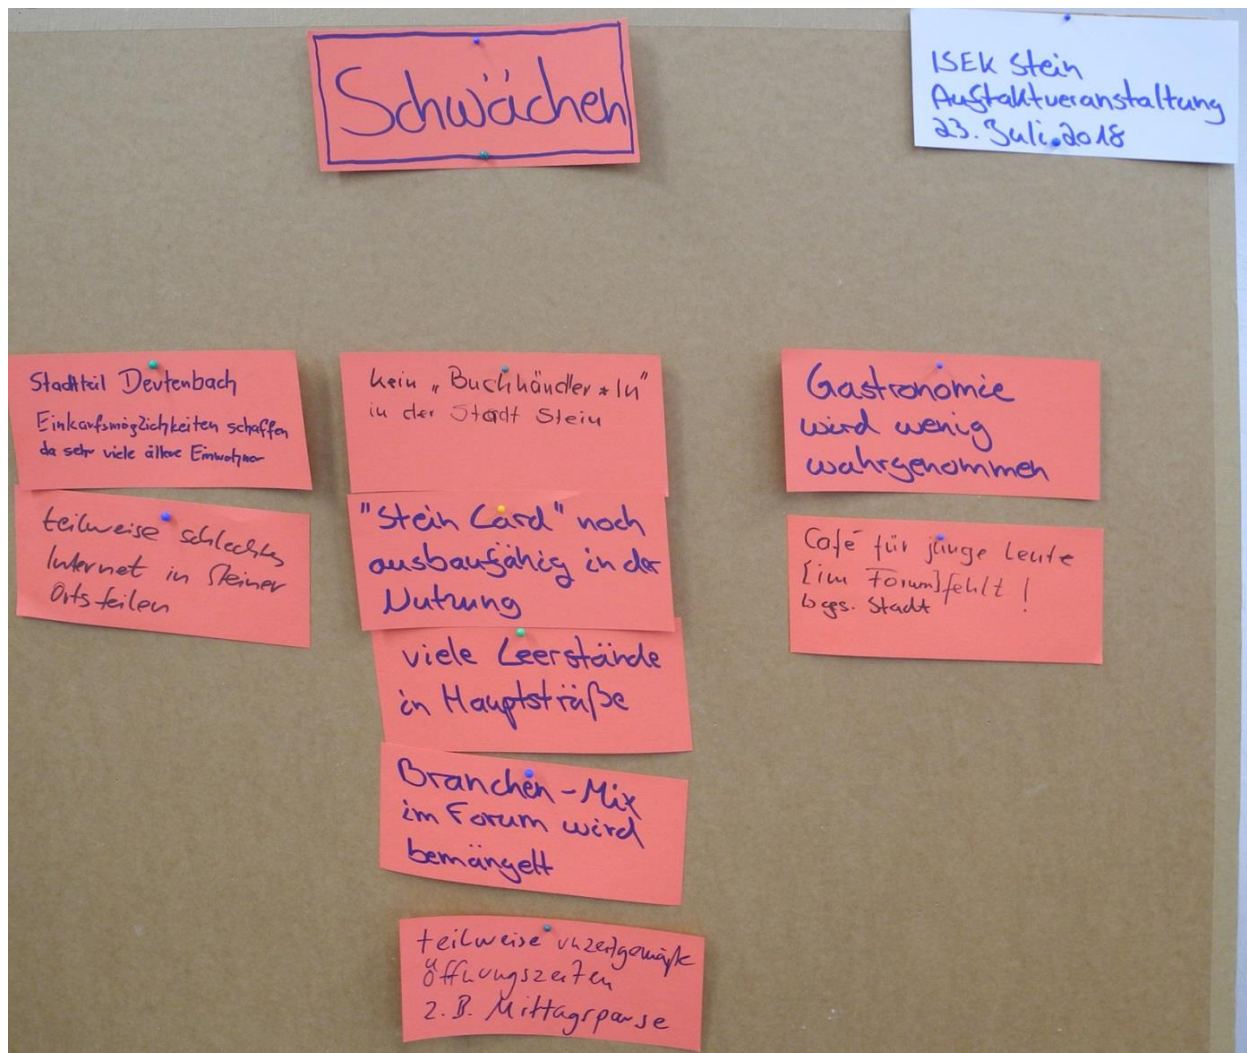 Schwächen
ISEK Stein
Auftaktveranstaltung
23. Juli 2018
Stadtteil Deutenbach
Einkaufsmöglichkeiten schaffen
da sehr viele ältere Einwohner
teilweise schlechtes
Internet in Steiner
Ortsteilen
kein "Buchhändler*In"
in der Stadt Stein
"Stein Card" noch
ausbaufähig in der
Nutzung
viele Leerstände
in Hauptstraße
Branchen-Mix
im Forum wird
bemängelt
teilweise unzeitgemäße
Öffnungszeiten
z.B. Mittagspause
Gastronomie
wird wenig
wahrgenommen
Café für junge Leute
[im Forum] fehlt!
ges. Stadt